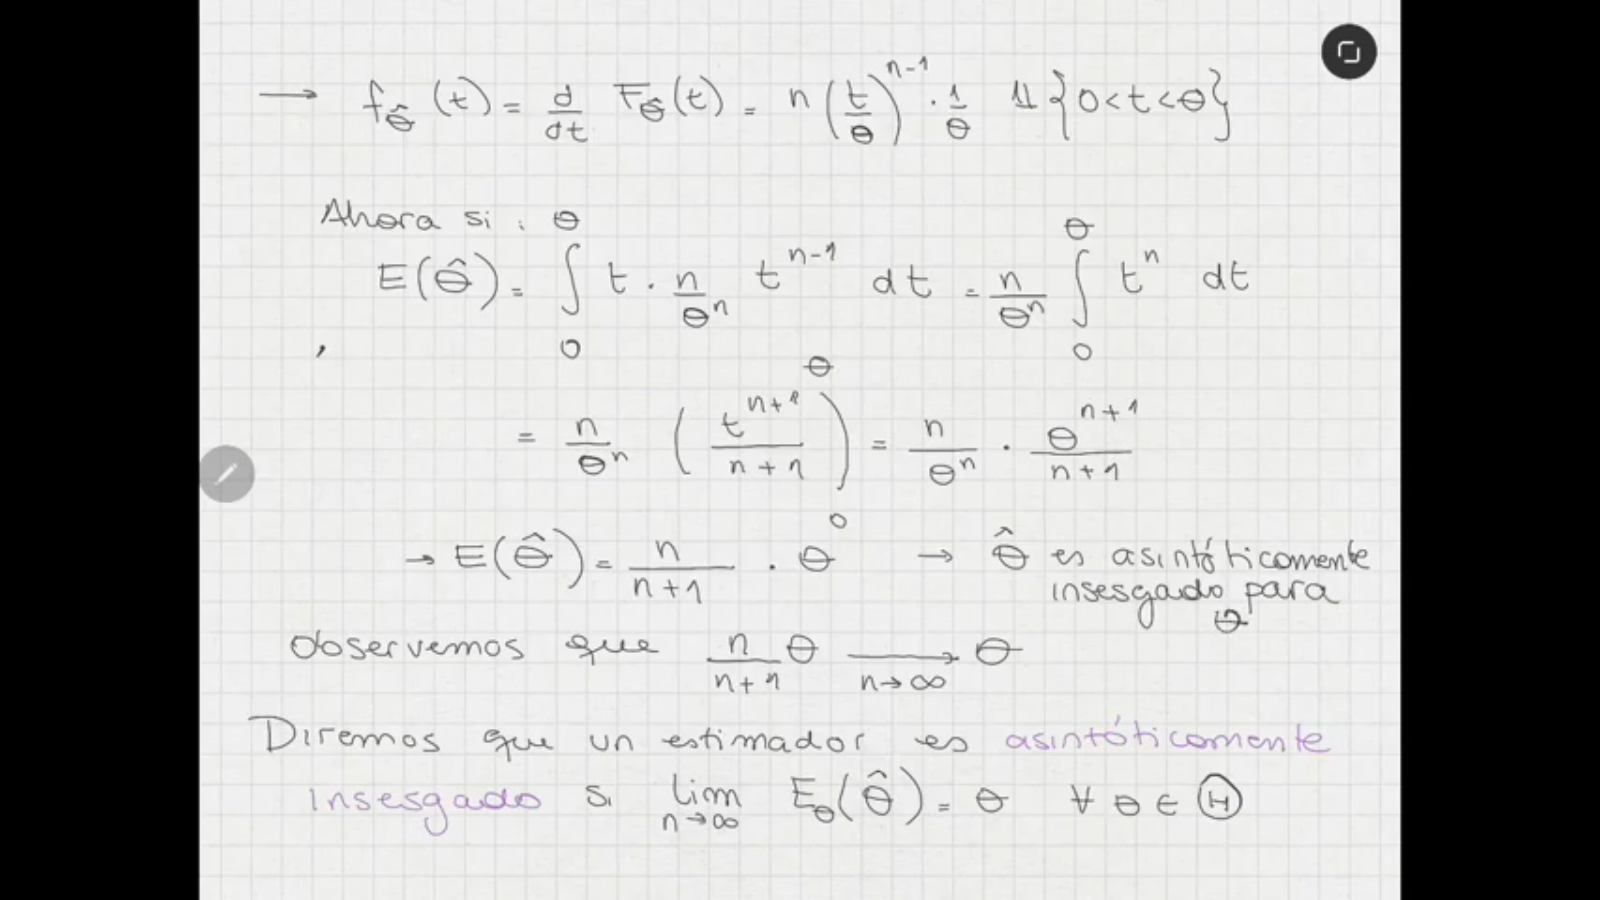 → f_θ̂ (t) = d/dt F_θ̂ (t) = n (t/θ)^{n-1} · 1/θ 𝟙{0<t<θ}
Ahora si :
E(θ̂) = ∫_0^θ t · n/θ^n t^{n-1} dt = n/θ^n ∫_0^θ t^n dt
= n/θ^n (t^{n+1}/(n+1))_0^θ = n/θ^n · θ^{n+1}/(n+1)
→ E(θ̂) = n/(n+1) · θ → θ̂ es asintóticamente
insesgado para
θ
Observemos que n/(n+1) θ →_{n→∞} θ
Diremos que un estimador es asintóticamente
insesgado si lim_{n→∞} E_θ(θ̂) = θ ∀ θ ∈ Θ